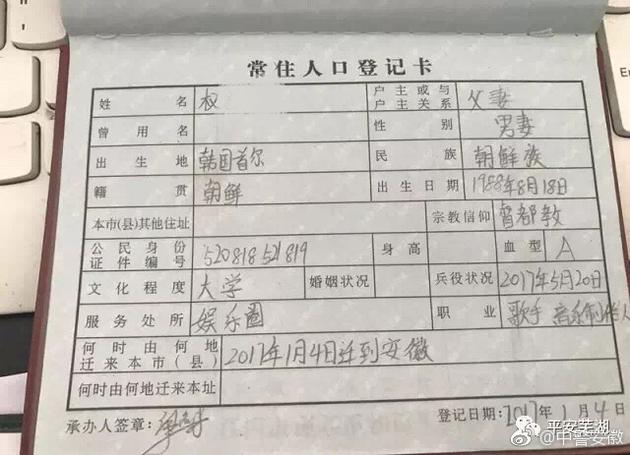 常住人口登记卡
姓名 权 户主或与户主关系 父妻
曾用名 性别 男妻
出生地 韩国首尔 民族 朝鲜族
籍贯 朝鲜 出生日期 1988年8月18日
本市(县)其他住址 宗教信仰 督都教
公民身份证件编号 52081852 1819 身高 血型 A
文化程度 大学 婚姻状况 兵役状况 2017年5月20日
服务处所 娱乐圈 职业 歌手 音乐制作人
何时由何地迁来本市(县) 2017年1月4日迁到安徽
何时由何地迁来本址
承办人签章: 登记日期:2017年1月4日
平安芜湖
@中警安徽
En